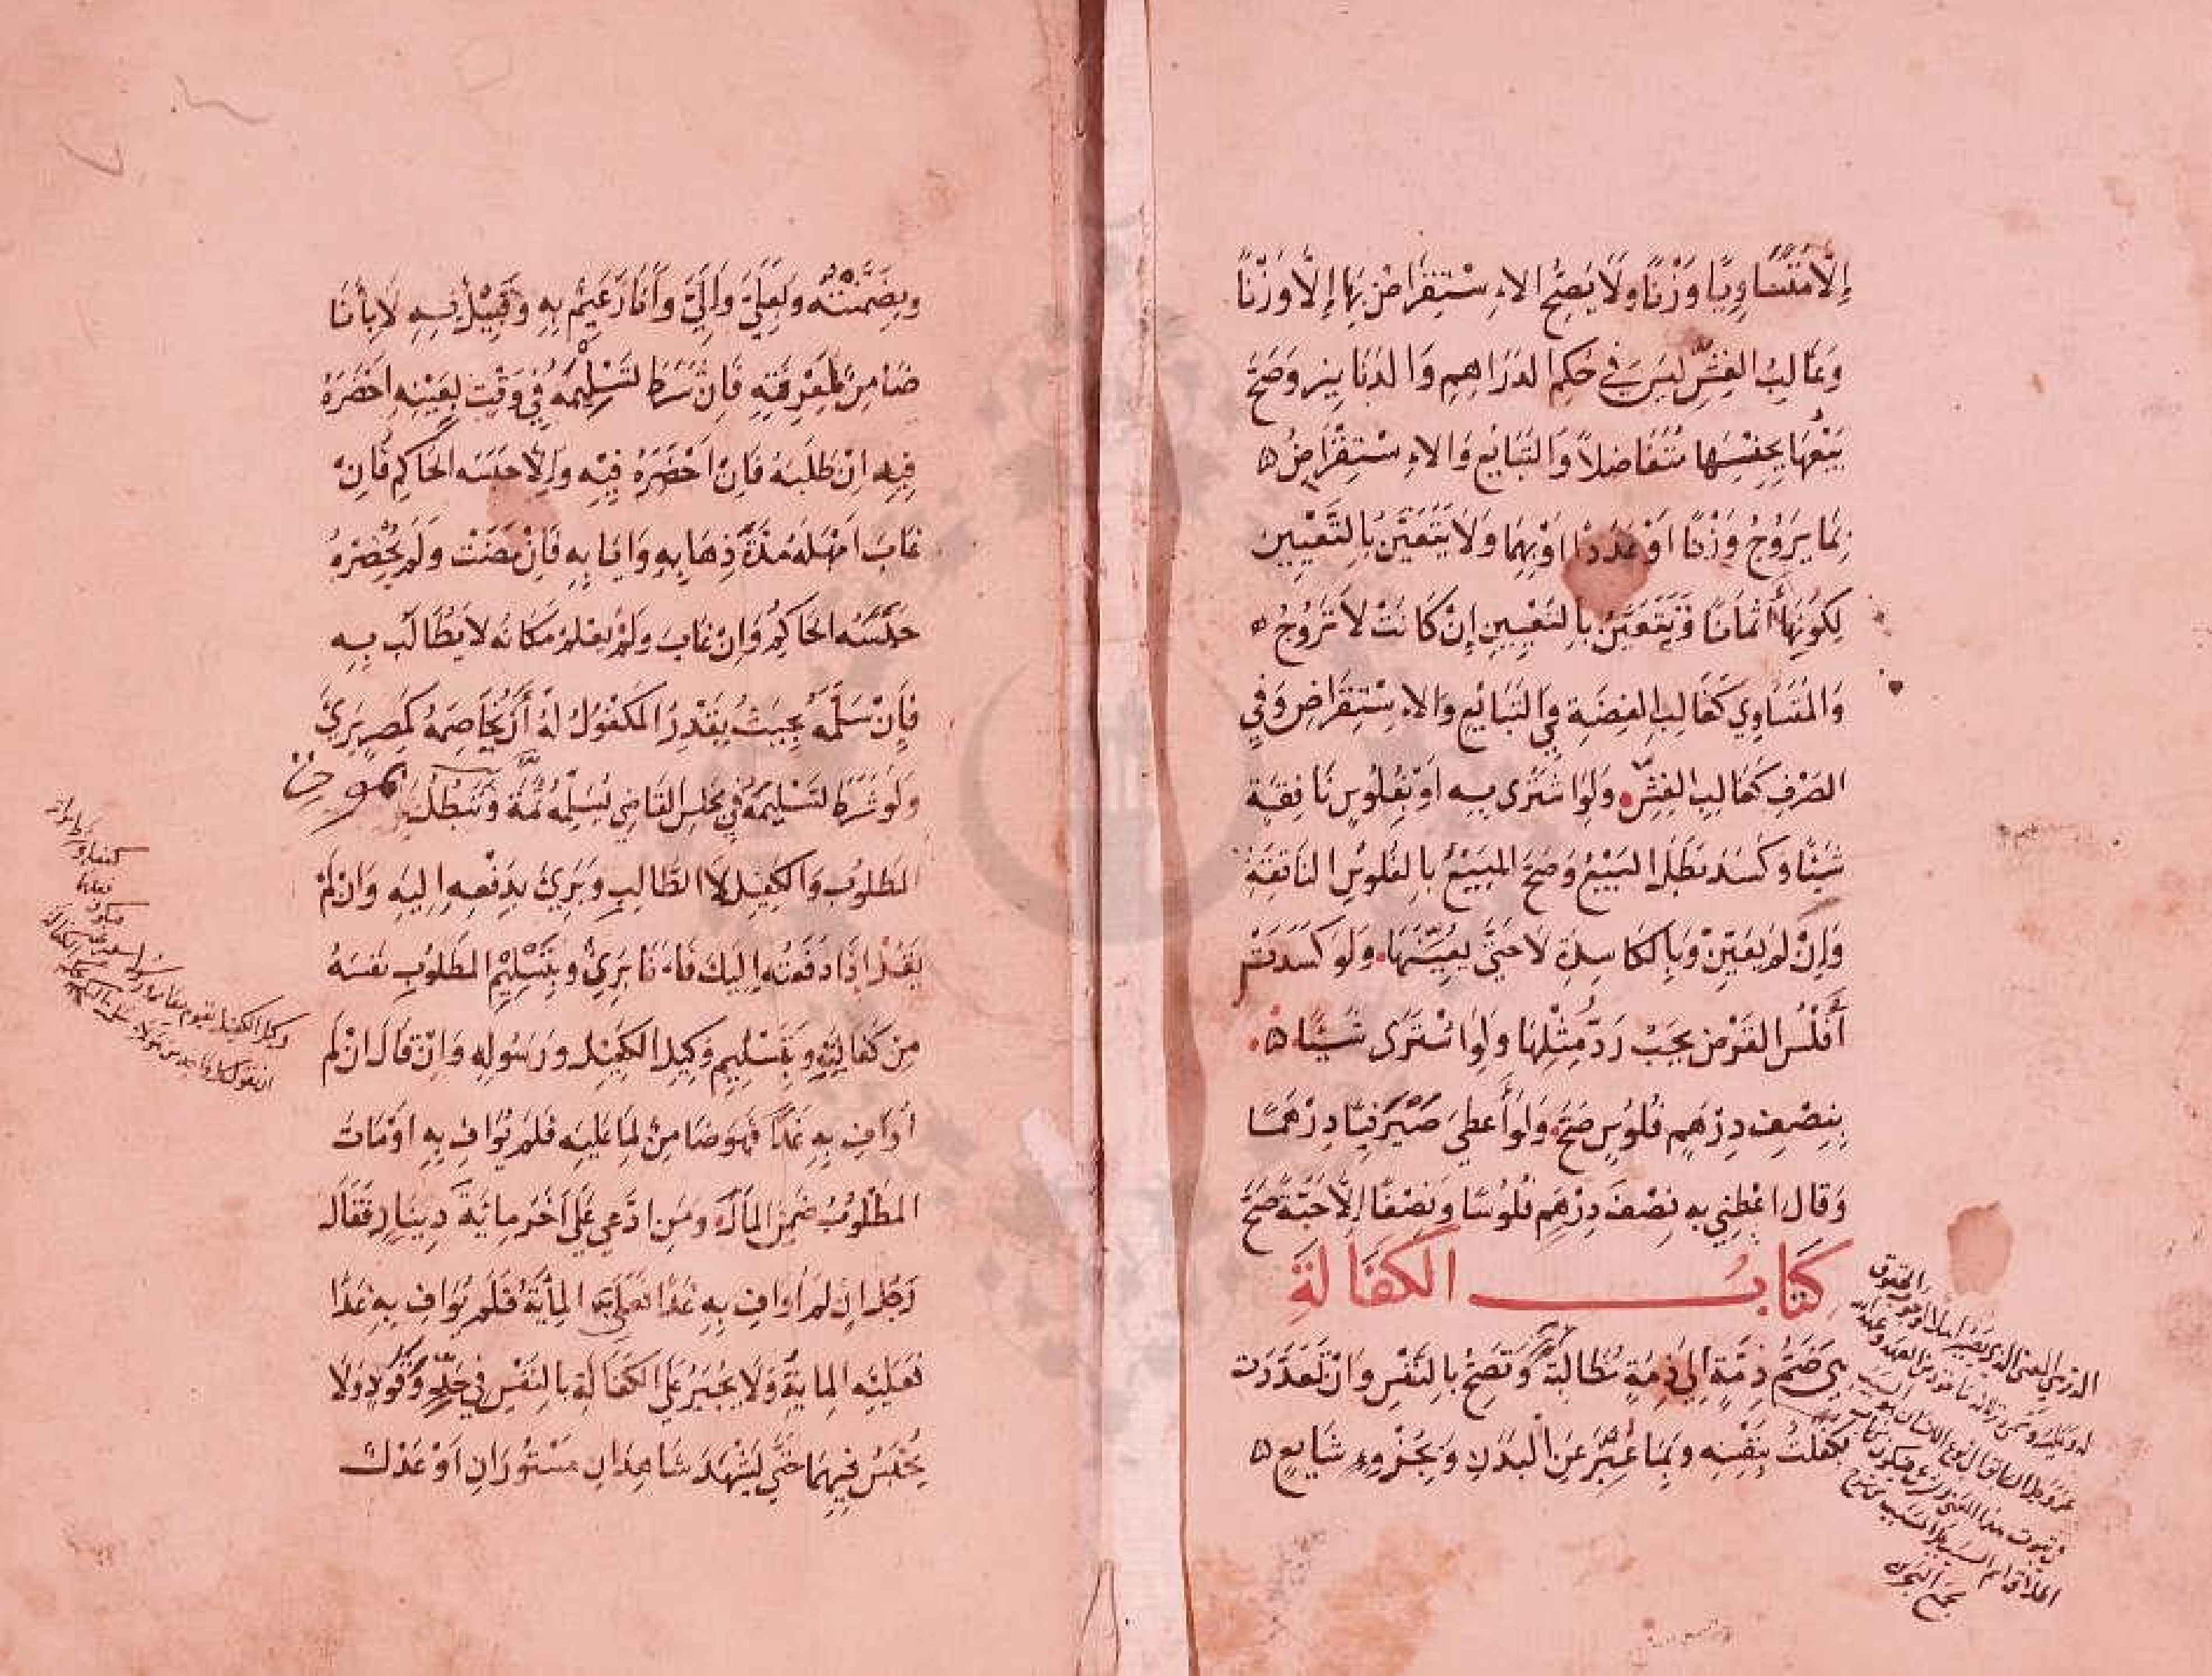 إِلَّا مُتَسَاوِيًا وَزْنًا وَلَا يَصِحُّ الاِسْتِقْرَاضُ بِهَا إِلَّا وَزْنًا
وَغَالِبُ الْغِشِّ لَيْسَ فِي حُكْمِ الدَرَاهِمِ وَالدَنَانِيرِ وَصَحَّ
بَيْعُهَا بِجِنْسِهَا مُتَفَاضِلًا وَالتَبَايُعُ وَالاِسْتِقْرَاضُ
بِمَا يَرُوْجُ وَزْنًا اَوْ عَدَدًا اَوْ بِهِمَا وَلَا يَتَعَيَّنُ بِالتَّعْيِينِ
لِكَوْنِهَا أَثْمَانًا وَيَتَعَيَّنُ بِالتَعْيِينِ إِنْ كَانَتْ لَا تَرُوْجُ
وَالْمُتَسَاوِي كَغَالِبِ الْفِضَّةِ فِي التَبَايُعِ وَالاِسْتِقْرَاضِ وَفِي
الصَرْفِ كَغَالِبِ الْغِشِّ وَلَوِ اشْتَرَى بِهِ اَوْ بِفُلُوْسٍ نَافِقَةٍ
شَيْئًا وَكَسَدَ بَطَلَ الْبَيْعُ وَصَحَّ الْبَيْعُ بِالْفُلُوْسِ النَافِقَةِ
وَاِنْ لَمْ يُعَيَّنْ وَبِالْكَاسِدَةِ لَا حَتَّى يُعَيِّنَهَا وَلَوْ كَسَدَتْ
أَفْلُسُ الْقَرْضِ يَجِبُ رَدُّ مِثْلِهَا وَلَوِ اشْتَرَى شَيْئًا
بِنِصْفِ دِرْهَمٍ فُلُوْسٍ صَحَّ وَلَوْ أَعْطَى صَيْرَفِيًا دِرْهَمًا
وَقَالَ اعْطِنِي بِهِ نِصْفَ دِرْهَمٍ فُلُوْسًا وَنِصْفًا إِلَّا حَبَّةً صَحَّ
كِتَابُ الكَفَالَةِ
هِيَ ضَمُّ ذِمَّةٍ إِلَى ذِمَّةٍ مُطَالَبَةً وَتَصِحُّ بِالنَّفْسِ وَاِنْ تَعَدَّدَتْ
بِكَفَلْتُ بِنَفْسِهِ وَبِمَا عُبِّرَ عَنِ الْبَدَنِ وَبِجُزْءٍ شَايِعٍ
وَبِضَمِنْتُهُ وَبِعَلَيَّ وَإِلَيَّ وَأَنَا زَعِيمٌ بِهِ وَقَبِيْلٌ بِهِ لَا بِأَنَا
ضَامِنٌ لِمَعْرِفَتِهِ فَاِنْ شَرَطَ تَسْلِيْمَهُ فِي وَقْتٍ بِعَيْنِهِ اَحْضَرَهُ
فِيْهِ اِنْ طَلَبَهُ فَاِنْ اَحْضَرَهُ فِيْهِ وَاِلَّا حَبَسَهُ الْحَاكِمُ فَاِنْ
غَابَ اَمْهَلَهُ مُدَّةَ ذِهَابِهِ وَاِيَابِهِ فَاِنْ مَضَتْ وَلَمْ يُحْضِرْهُ
حَبَسَهُ الْحَاكِمُ وَاِنْ غَابَ وَلَمْ يَعْلَمْ مَكَانَهُ لَا يُطَالَبُ بِهِ
فَإِنْ سَلَّمَهُ بِحَيْثُ يَقْدِرُ الْمَكْفُوْلُ لَهُ أَنْ يُخَاصِمَهُ كَمِصْرٍ بَرِئَ
وَلَوْ شَرَطَ تَسْلِيْمَهُ فِي مَجْلِسِ الْقَاضِي يُسَلِّمُهُ ثَمَّةَ وَتَبْطُلُ بِمَوْتِ
الْمَطْلُوْبِ وَالْكَفِيْلِ لَا الطَّالِبِ وَبَرِئَ بِدَفْعِهِ اِلَيْهِ وَاِنْ لَمْ
يَقُلْ اِذَا دَفَعْتُهُ اِلَيْكَ فَاَنَا بَرِئٌ وَبِتَسْلِيْمِ الْمَطْلُوْبِ نَفْسَهُ
مِنْ كَفَالَتِهِ وَبِتَسْلِيمِ وَكِيْلِ الْكَفِيْلِ وَرَسُوْلِهِ وَاِنْ قَالَ اِنْ لَمْ
اُوَافِ بِهِ غَدًا فَهُوَ ضَامِنٌ لِمَا عَلَيْهِ فَلَمْ يُوَافِ بِهِ اَوْ مَاتَ
الْمَطْلُوْبُ ضَمِنَ الْمَالَ وَمَنِ ادَّعَى عَلَى اٰخَرَ مِائَةَ دِيْنَارٍ فَقَالَ
رَجُلٌ اِنْ لَمْ اُوَافِ بِهِ غَدًا فَعَلَيَّ الْمِائَةُ فَلَمْ يُوَافِ بِهِ غَدًا
فَعَلَيْهِ الْمِايَةُ وَلَا يُجْبَرُ عَلَى الْكَفَالَةِ بِالنَفْسِ فِي حَدٍّ وَقَوَدٍ وَلَا
يُحْبَسُ فِيْهِمَا حَتَّى يَشْهَدَ شَاهِدَانِ مَسْتُوْرَانِ اَوْ عَدْلٌ